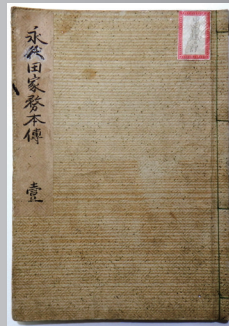 永代田家務本傳 壹